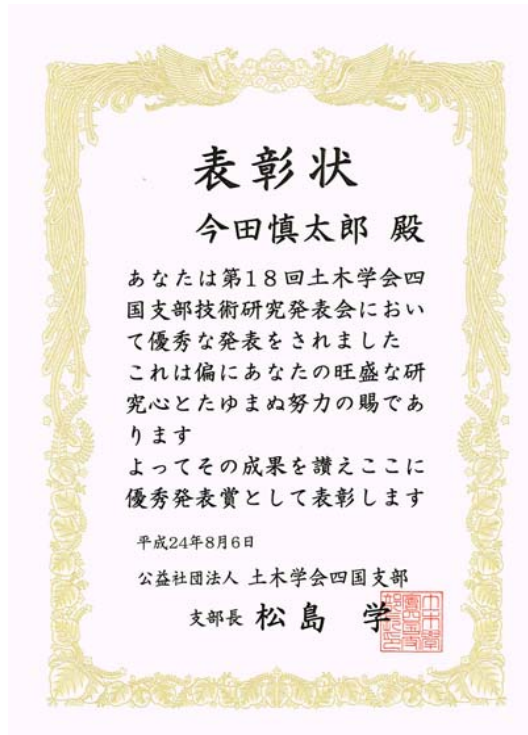 表彰状
今田慎太郎 殿
あなたは第18回土木学会四
国支部技術研究発表会におい
て優秀な発表をされました
これは偏にあなたの旺盛な研
究心とたゆまぬ努力の賜であ
ります
よってその成果を讃えここに
優秀発表賞として表彰します
平成24年8月6日
公益社団法人 土木学会四国支部
支部長 松島 学